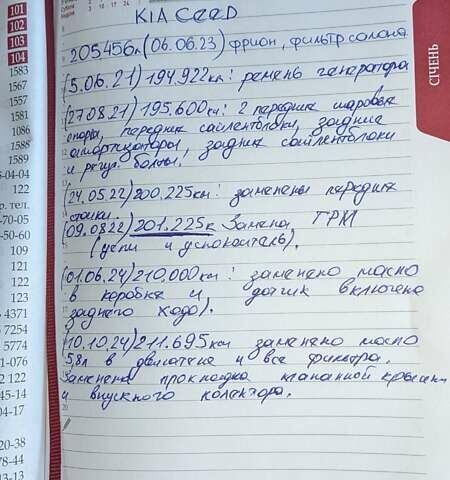 KIA CEED
205.456к (06.06.23) фрион, фильтр салона
(5.06.21) 194.922км: ремень генератора
(27.08.21) 195.600км: 2 передние шаровые
опоры, передние сайлентблоки, задние
амортизаторы, задние сайлентблоки
и болты.
(24.05.22) 200.225км: заменены передние
стойки.
(09.08.22) 201.225к Замена ГРМ
(цепи и успокоитель).
(01.06.24) 210.000км: заменено масло
в коробке и датчик включения
заднего хода).
(10.10.24) 211.695км заменено масло
5,8л в двигателе и все фильтра.
Заменена прокладка клапанной крышки
и впускного колектора.
СІЧЕНЬ
101
102
103
104
1583
1567
1557
1581
1086
1588
1589
-04-04
122
р. тел.
-70-05
-50-60
109
121
122
123
4371
7254
5774
1-076
2 122
45-14
04-17
20-38
78-44
13-13